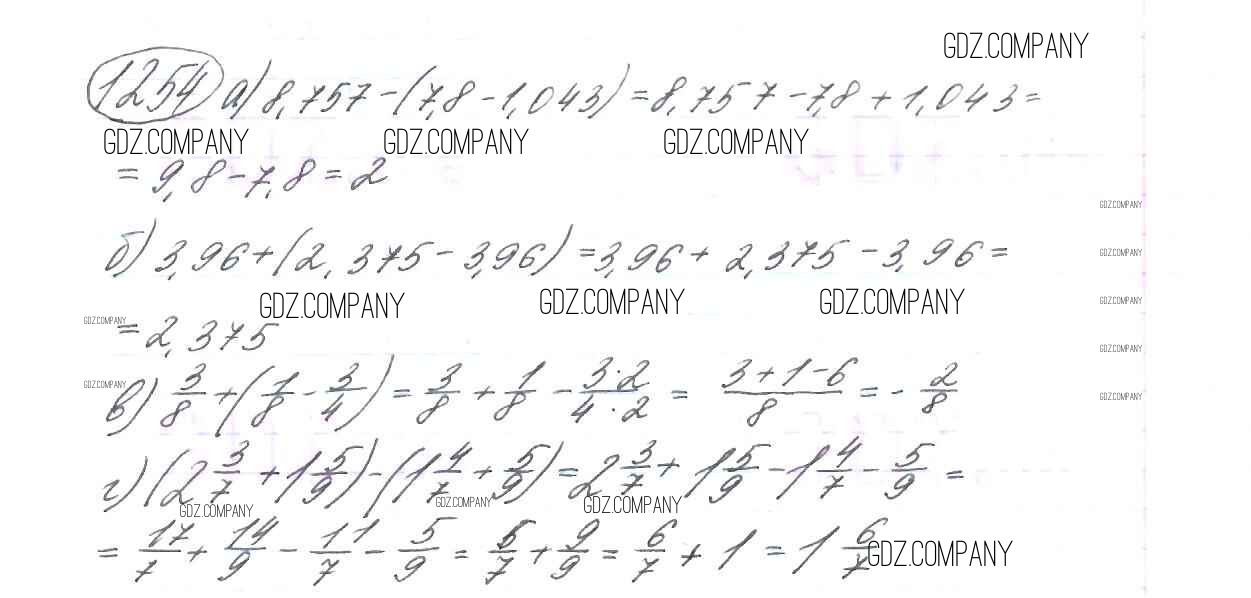 GDZ.COMPANY
1254 а) 8,757 - (7,8 - 1,043) = 8,757 - 7,8 + 1,043 =
GDZ.COMPANY GDZ.COMPANY GDZ.COMPANY
= 9,8 - 7,8 = 2
GDZ.COMPANY
б) 3,96 + (2,375 - 3,96) = 3,96 + 2,375 - 3,96 =
GDZ.COMPANY
GDZ.COMPANY GDZ.COMPANY GDZ.COMPANY
GDZ.COMPANY
GDZ.COMPANY
= 2,375
GDZ.COMPANY
GDZ.COMPANY
в) 3/8 + (1/8 - 3/4) = 3/8 + 1/8 - 3·2/4·2 = 3+1-6/8 = - 2/8
GDZ.COMPANY
г) (2 3/7 + 1 5/9) - (1 4/7 + 5/9) = 2 3/7 + 1 5/9 - 1 4/7 - 5/9 =
GDZ.COMPANY GDZ.COMPANY GDZ.COMPANY
= 17/7 + 14/9 - 11/7 - 5/9 = 6/7 + 9/9 = 6/7 + 1 = 1 6/7
GDZ.COMPANY